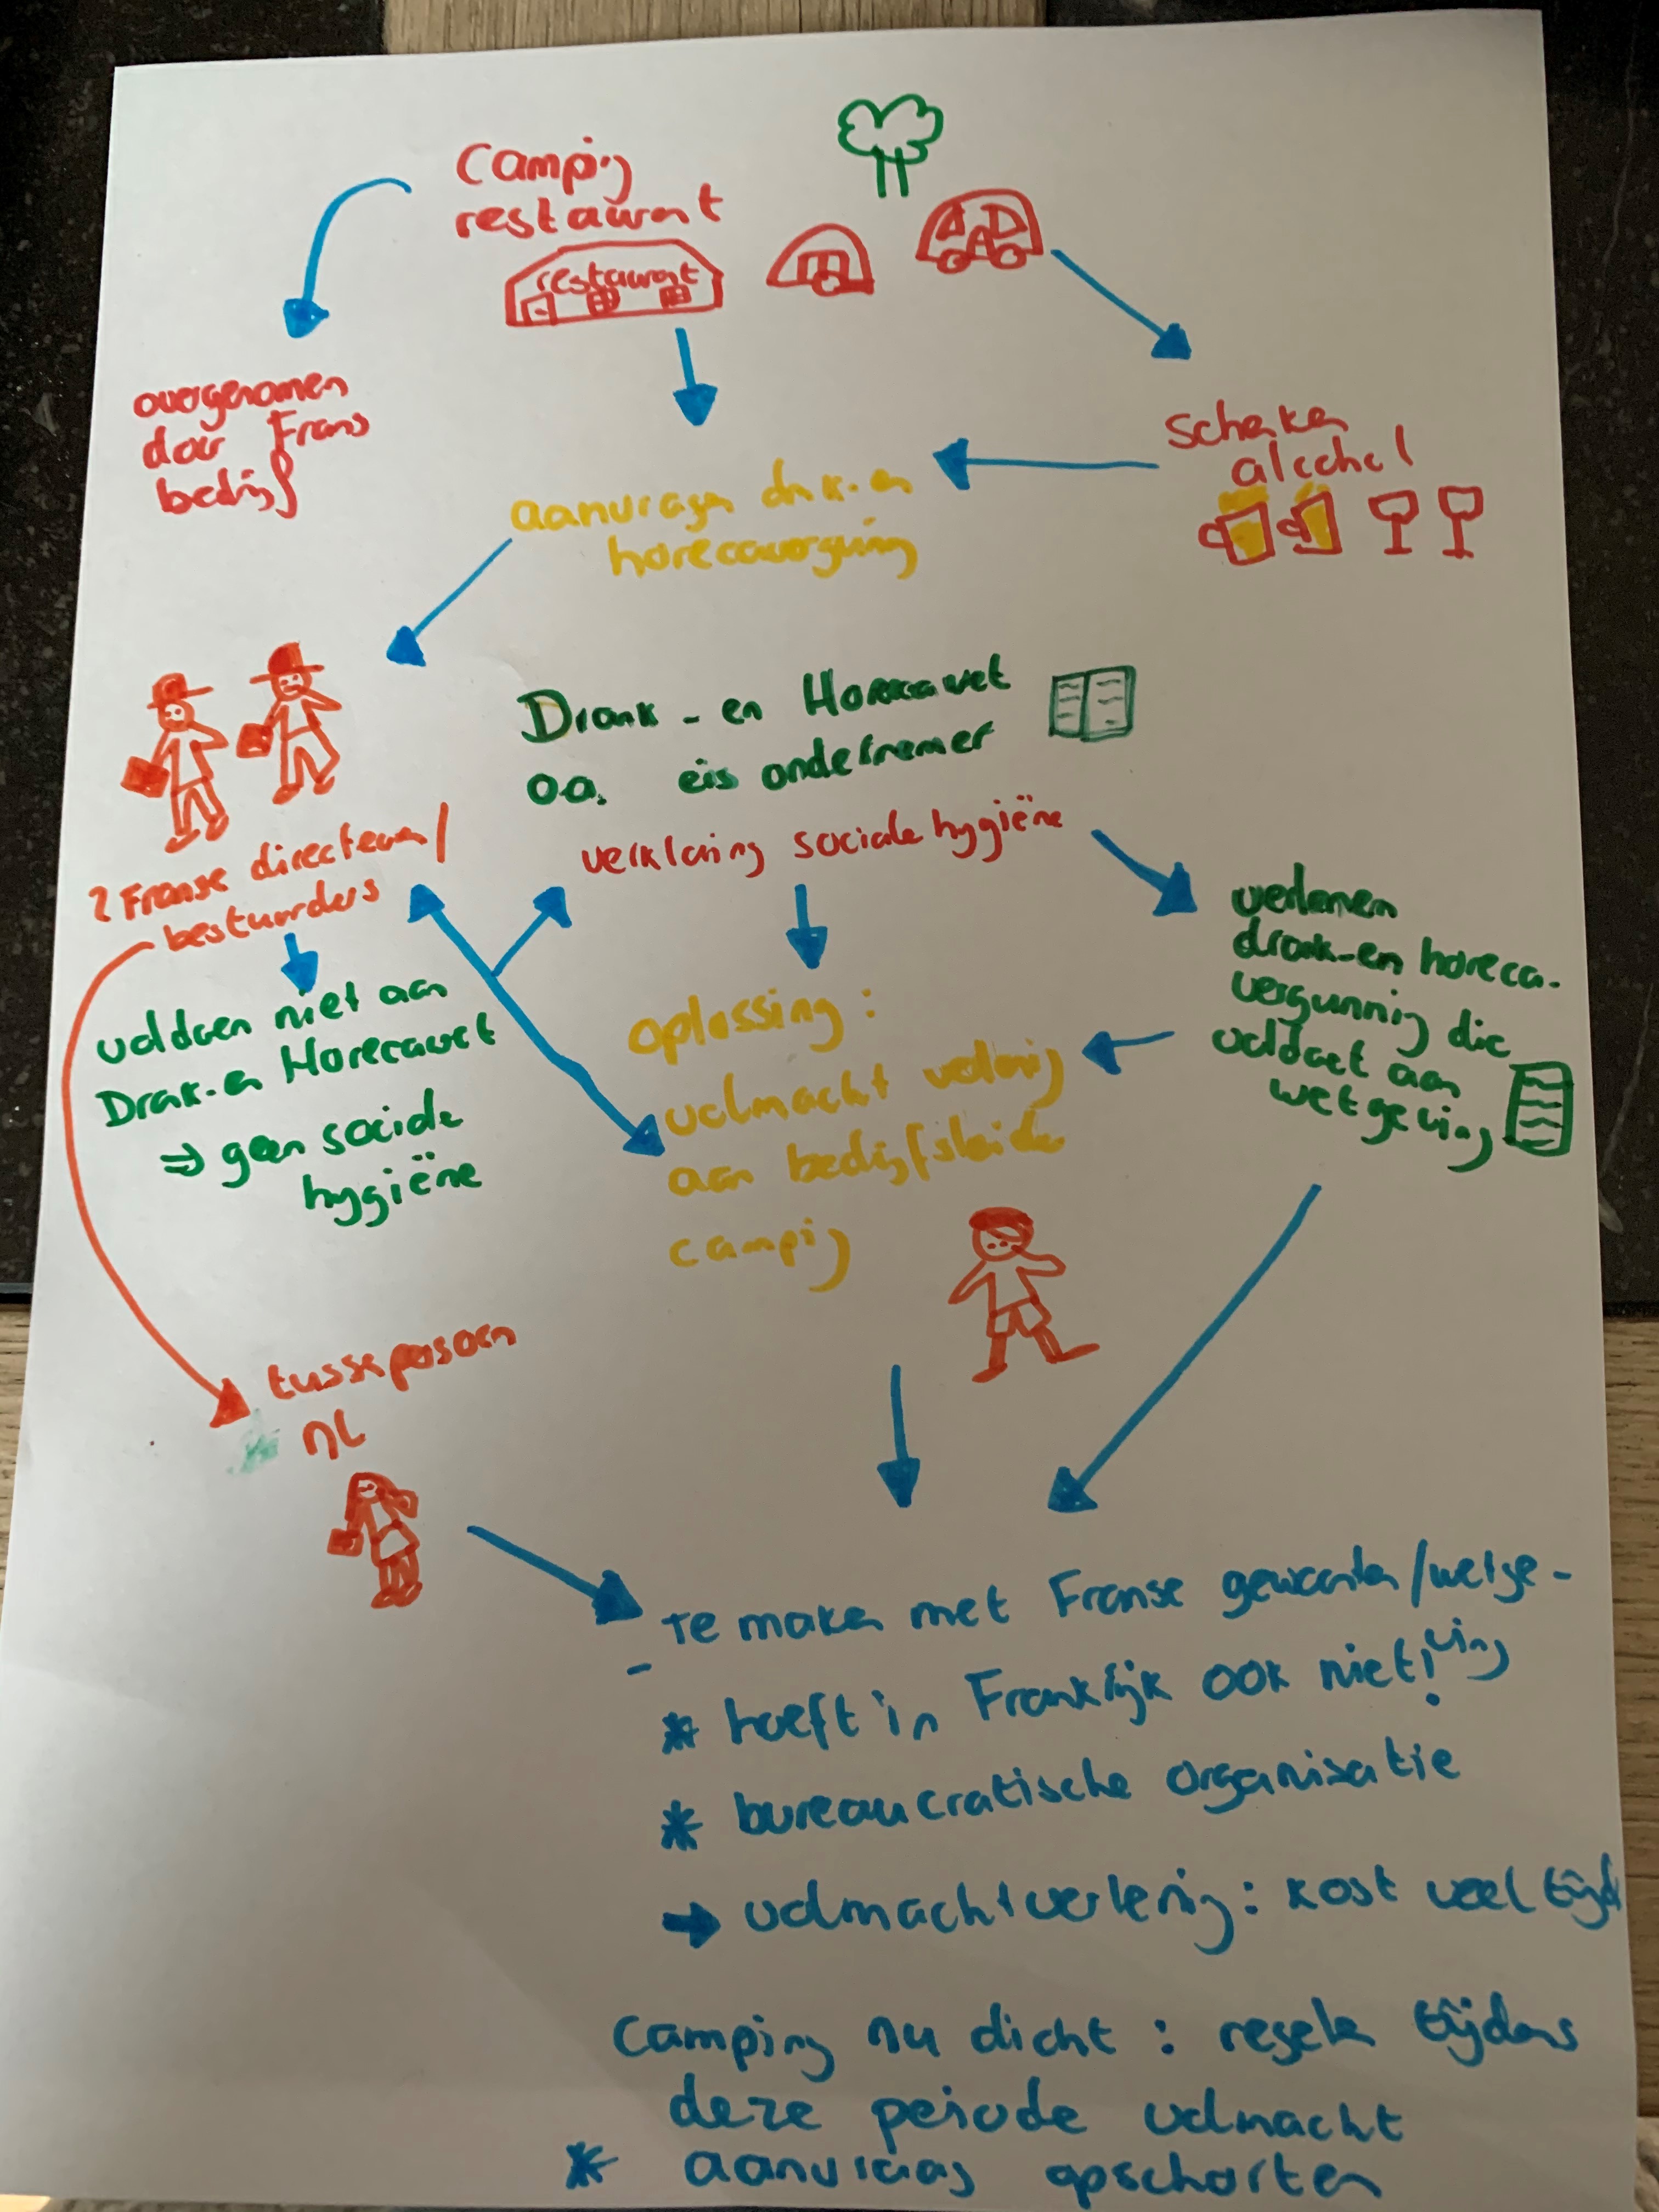 Camping
restaurant
restaurant
overgenomen
door Frans
bedrijf
schenken
alcohol
aanvragen drank-en
horecavergunning
Drank-en Horecawet
o.a. eis ondernemer
verklaring sociale hygiëne
2 Franse directeuren/
bestuurders
voldoen niet aan
Drank-en Horecawet
⇒ geen sociale
hygiëne
verlenen
drank-en horeca-
vergunning die
voldoet aan
wetgeving
oplossing:
volmacht verlening
aan bedrijfsleider
camping
tussenpersoon
NL
- te maken met Franse gewoonten/wetge-
ving
* hoeft in Frankrijk ook niet!
* bureaucratische organisatie
→ volmachtverlening: kost veel tijd
camping nu dicht: regelen tijdens
deze periode volmacht
* aanvraag opschorten